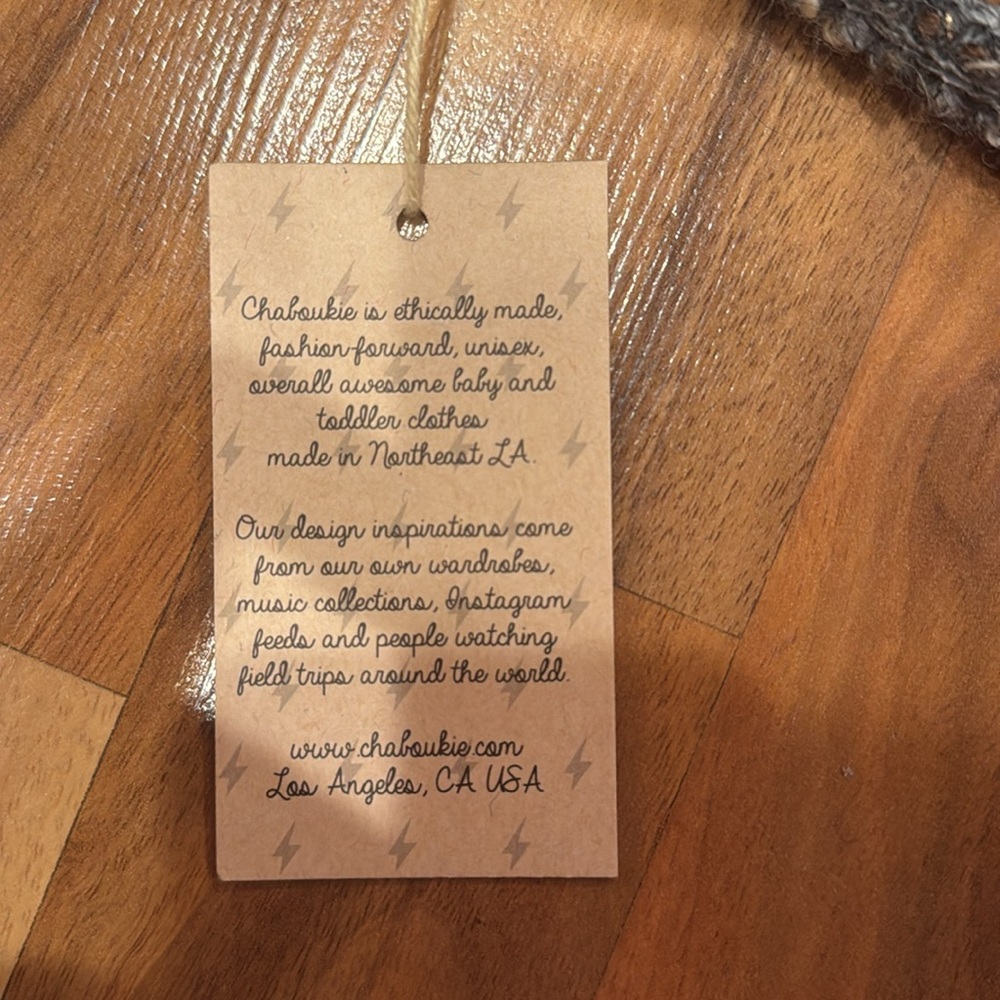 Chaboukie is ethically made,
fashion-forward, unisex,
overall awesome baby and
toddler clothes
made in Northeast LA.
Our design inspirations come
from our own wardrobes,
music collections, Instagram
feeds and people watching
field trips around the world.
www.chaboukie.com
Los Angeles, CA USA